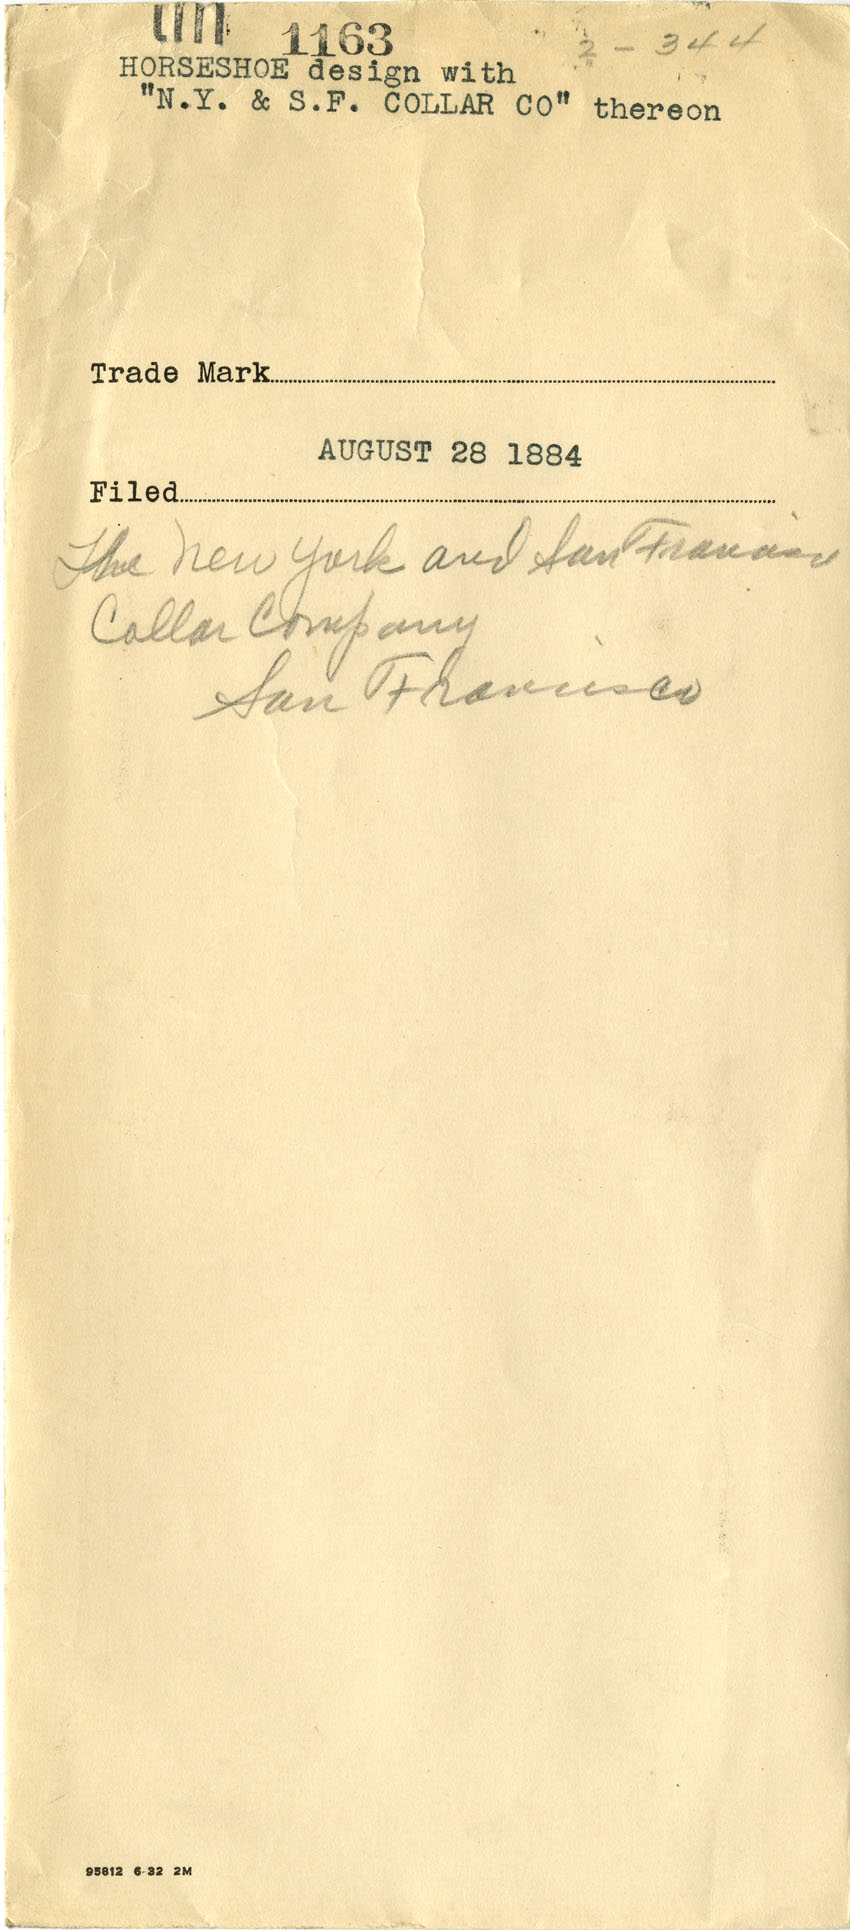 1163
2-344
HORSESHOE design with
"N.Y. & S.F. COLLAR CO" thereon
Trade Mark
AUGUST 28 1884
Filed
The New York and San Francisco
Collar Company
San Francisco
95812 6-32 2M